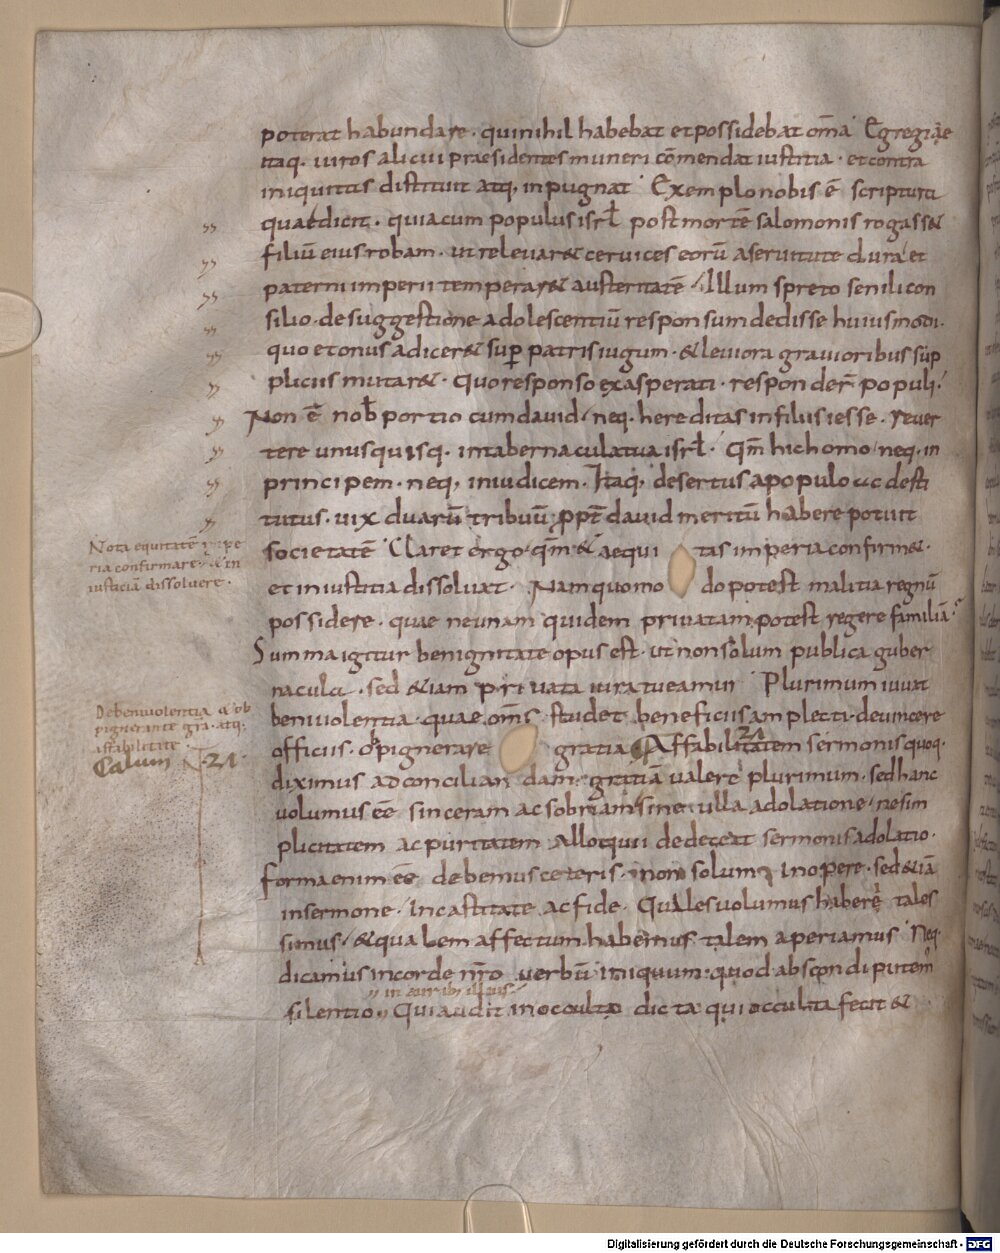 poterat habundare · qui nihil habebat et possidebat om̄a Egregiae
itaq· uiros alicui praesidentes muneri cōmendat iustitia · et contra
iniquitas distituit atq; inpugnat · Exemplo nobis ē scriptura
quae dicit · quia cum populus isrł post mortē salomonis rogass&
filiū eius robam · ut relevar& cervices eorū a seruitute dura et
paterni imperii temperar& austeritatē · Illum spreto senili con
silio · de suggestione adolescentiū responsum dedisse huiusmodi ·
quo et onus adicer& suꝑ patris iugum · & leuiora grauioribus sup
pliciis mutar& · Quo responso exasperati · responder̄ populi ·
Non ē nob̄ portio cum david / neq· hereditas in filiis iesse · rever
tere unusquisq· in tabernacula tua isrł · Qm̄ hic homo / neq· in
principem · neq; in iudicem · Itaq; desertus a populo ac desti
tutus · uix duarū tribuū ꝓpt̄ david meritū habere potuit
societatē Claret ergo · qm̄ & aequi tas imperia confirm& ·
et iniustitia dissoluat · Nam quomo do potest malitia regnū
possidere · quae ne unam quidem privatam potest regere familiā
Summa igitur benignitate opus est · ut non solum publica guber
nacula · sed &iam privata iura tueamur Plurimum iuvat
beniuolentia · quae om̄s studet beneficiis amplecti · deuincere
officiis · oppignerare gratia Affabilitatem sermonis quoq·
21
diximus ad conciliandam gratiā valere plurimum · sed hanc
volumus eē sinceram ac sobriam / sine ulla adolatione / ne sim
plicitatem ac puritatem Alloquii dedeceat sermonis adolatio ·
forma enim eē debemus ceteris · non solum in opere · sed &iā
in sermone · In castitate ac fide · Quales volumus haberi tales
simus / & qualem affectum habemus talem aperiamus Neq·
dicamus in corde nr̄o verbū iniquum · quod abscondi putem᷒
in auribus illius
silentio · Qui audit in occulto dicta qui occulta fecit &
Nota equitatē impe
ria confirmare · & in
iusticiā dissoluere ·
De beniuolentia & ob
pignerante gra· atq;
affabilitate ·
Calum N · 21 ·
Digitalisierung gefördert durch die Deutsche Forschungsgemeinschaft - DFG